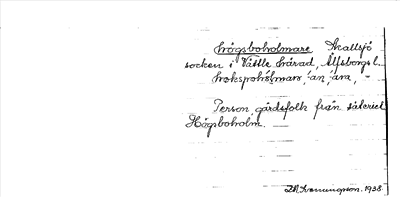 högsboholmare Skallsjö
socken i Vättle härad, Älfsborgs l.
hɵkspohɵlmarɐ, -an, -ara, -
Person, gårdsfolk från säteriet
Högsboholm.
1938